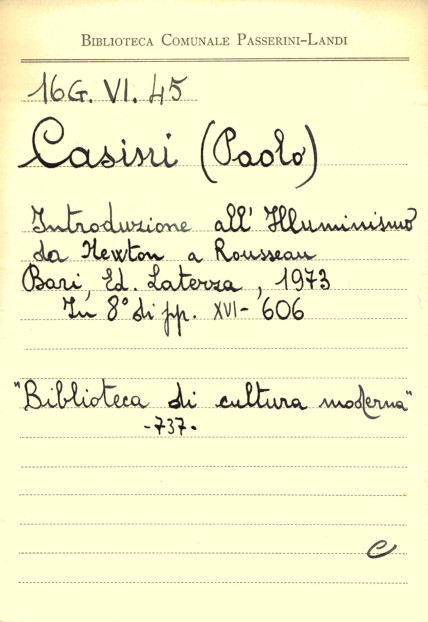 BIBLIOTECA COMUNALE PASSERINI-LANDI
16G. VI. 45
Casini (Paolo)
Introduzione all' Illuminismo
da Newton a Rousseau
Bari, Ed. Laterza, 1973
In 8° di pp. XVI- 606
"Biblioteca di cultura moderna"
-737.
e